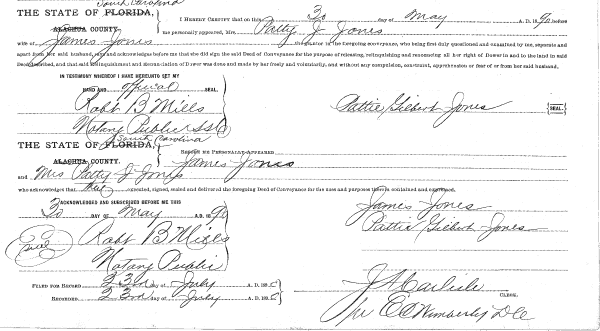 South Carolina
THE STATE OF FLORIDA,
ALACHUA COUNTY.
I HEREBY CERTIFY that on this 30 day of May A.D. 1890 before
me personally appeared, Mrs. Patty J Jones
wife of James Jones the grantor in the foregoing conveyance, who being first duly questioned and examined by me, separate and
apart from her said husband, says and acknowledges before me that she did sign the said Deed of Conveyance for the purpose of releasing, relinquishing and renouncing all her right of Dower in and to the land in said
Deed described, and that said Relinquishment and Renunciation of Dower was done and made by her freely and voluntarily, and without any compulsion, constraint, apprehension or fear of or from her said husband.
IN TESTIMONY WHEREOF I HAVE HEREUNTO SET MY
HAND AND official SEAL,
Robt B Mills
Notary Public SS
Pattie Gilbert Jones SEAL.
South Carolina
THE STATE OF FLORIDA,
ALACHUA COUNTY.
BEFORE ME PERSONALLY APPEARED James Jones
and Mrs Patty J Jones
who acknowledges that they executed, signed, sealed and delivered the foregoing Deed of Conveyance for the uses and purposes therein contained and expressed.
ACKNOWLEDGED AND SUBSCRIBED BEFORE ME THIS
30 DAY OF May A.D. 1890
James Jones
Pattie Gilbert Jones
Seal
Robt B Mills
Notary Public
FILED FOR RECORD 23rd day of July A. D. 189
RECORDED 23rd day of July A. D. 189
J A Carlisle CLERK.
pr E C Wimberly D C